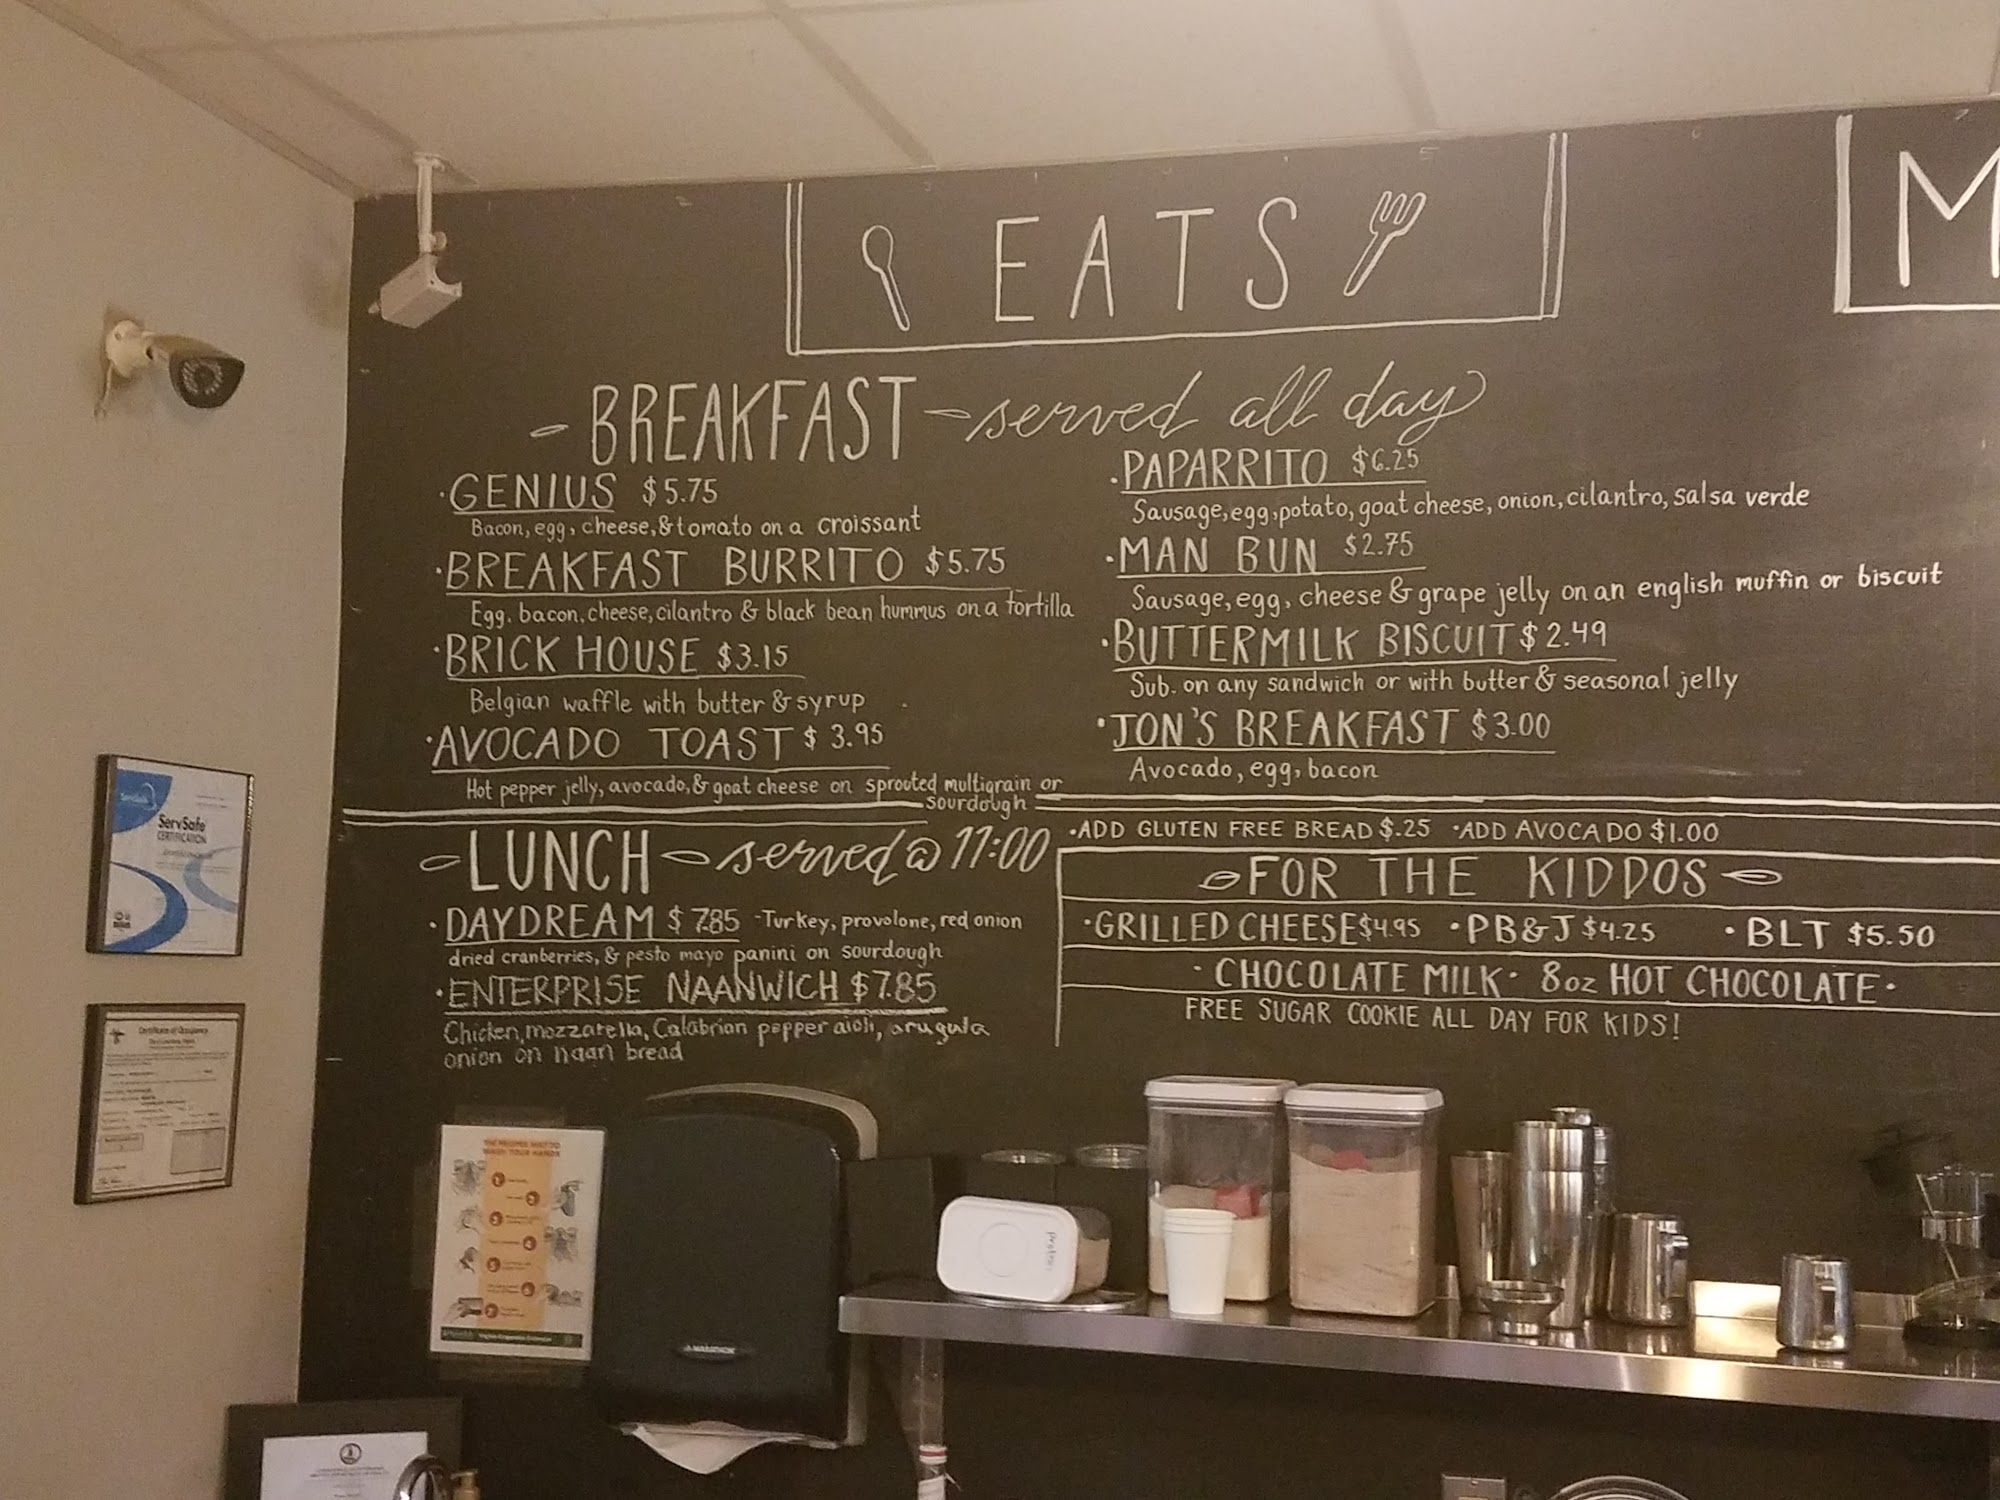 EATS
M
BREAKFAST served all day
·GENIUS $5.75
Bacon, egg, cheese, & tomato on a croissant
·BREAKFAST BURRITO $5.75
Egg, bacon, cheese, cilantro & black bean hummus on a tortilla
·BRICK HOUSE $3.15
Belgian waffle with butter & syrup
·AVOCADO TOAST $3.95
Hot pepper jelly, avocado, & goat cheese on sprouted multigrain or
sourdough
·PAPARRITO $6.25
Sausage, egg, potato, goat cheese, onion, cilantro, salsa verde
·MAN BUN $2.75
Sausage, egg, cheese & grape jelly on an english muffin or biscuit
·BUTTERMILK BISCUIT $2.49
Sub. on any sandwich or with butter & seasonal jelly
·JON'S BREAKFAST $3.00
Avocado, egg, bacon
·ADD GLUTEN FREE BREAD $.25 ·ADD AVOCADO $1.00
LUNCH served @ 11:00
·DAYDREAM $7.85 -Turkey, provolone, red onion
dried cranberries, & pesto mayo panini on sourdough
·ENTERPRISE NAANWICH $7.85
Chicken, mozzarella, Calabrian pepper aioli, arugula
onion on naan bread
FOR THE KIDDOS
·GRILLED CHEESE $4.95 ·PB&J $4.25 ·BLT $5.50
·CHOCOLATE MILK· 8oz HOT CHOCOLATE·
FREE SUGAR COOKIE ALL DAY FOR KIDS!
ServSafe
CERTIFICATION
Certificate of Occupancy
WASH YOUR HANDS
1
2
3
4
5
6
7
MARATHON
Protein